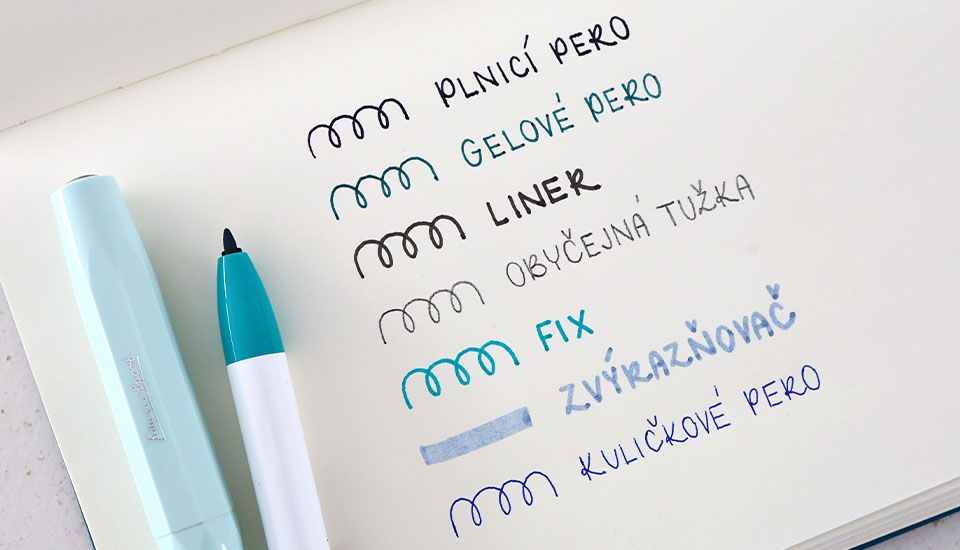 PLNICÍ PERO
GELOVÉ PERO
LINER
OBYČEJNÁ TUŽKA
FIX
ZVÝRAZŇOVAČ
KULIČKOVÉ PERO